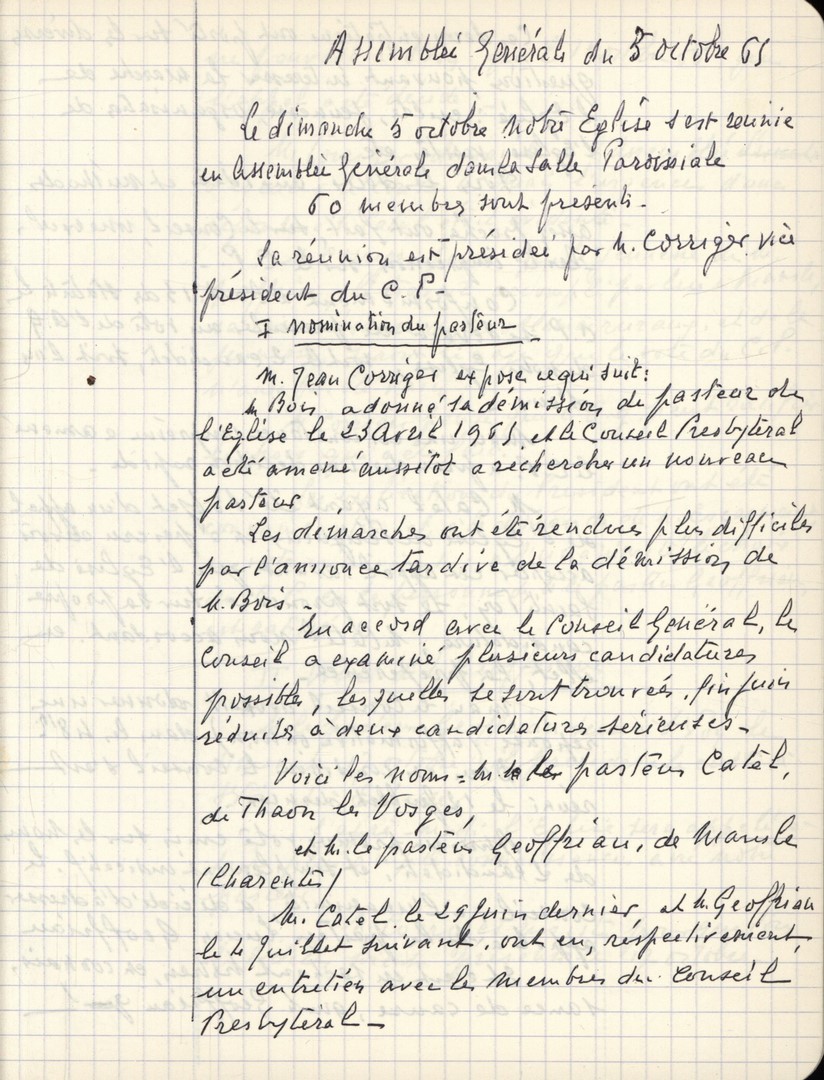 Assemblée Générale du 5 octobre 65
Le dimanche 5 octobre notre Eglise s'est reunie
en Assemblée Générale dans la Salle Paroissiale
60 membres sont présents.
La réunion est présidée par M. Corriger vice
président du C. P.
I nomination du pasteur.
M. Jean Corriger expose ce qui suit :
M. Bois a donné sa démission de pasteur de
l'Eglise le 23 Avril 1965 et le Conseil Presbytéral
a été amené aussitot a rechercher un nouveau
pasteur
Les démarches ont été rendues plus difficiles
par l'annonce tardive de la démission de
M. Bois -
En accord avec le Conseil Général, le
Conseil a examiné plusieurs candidatures
possibles, lesquelles se sont trouvées, fin juin
réduites à deux candidatures sérieuses -
Voici les noms = M. le pasteur Catel,
de Thaon les Vosges,
et M. le pasteur Geoffrian, de Mansle
(Charente)
M. Catel le 29 Juin dernier, et M. Geoffrian
le 4 Juillet suivant, ont eu, respectivement,
un entretien avec les membres du Conseil
Presbytéral -